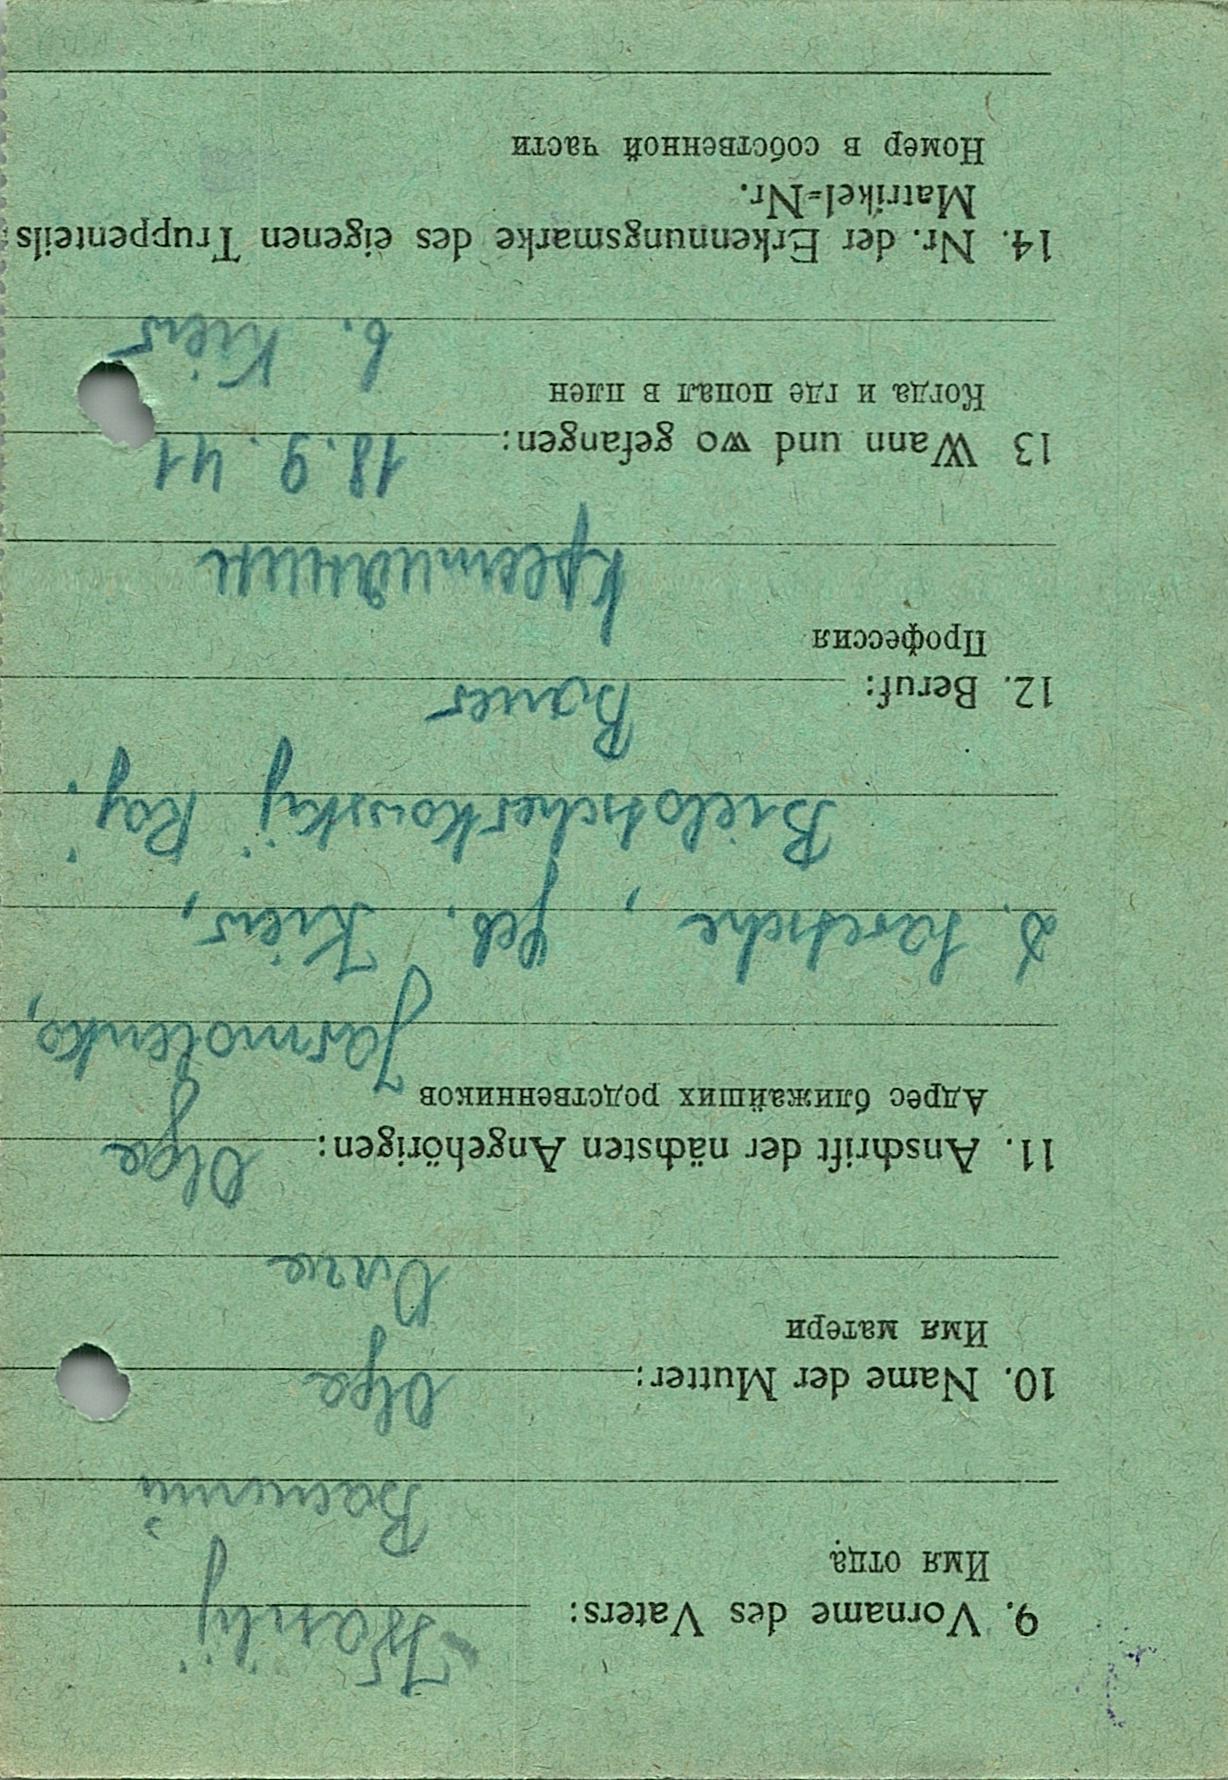 9. Vorname des Vaters: Wasilij
Имя отца
Василий
10. Name der Mutter: Olga
Имя матери
11. Anschrift der nächsten Angehörigen: Olga
Адрес ближайших родственников
Jarmolenko,
Geb. Kiew,
Bielotscherkowskij Raj.
12. Beruf: Bauer
Профессия
крестьянин
13 Wann und wo gefangen: 18.9.41
Когда и где попал в плен
b. Kiew
14. Nr. der Erkennungsmarke des eigenen Truppenteils
Matrikel=Nr.
Номер в собственной части